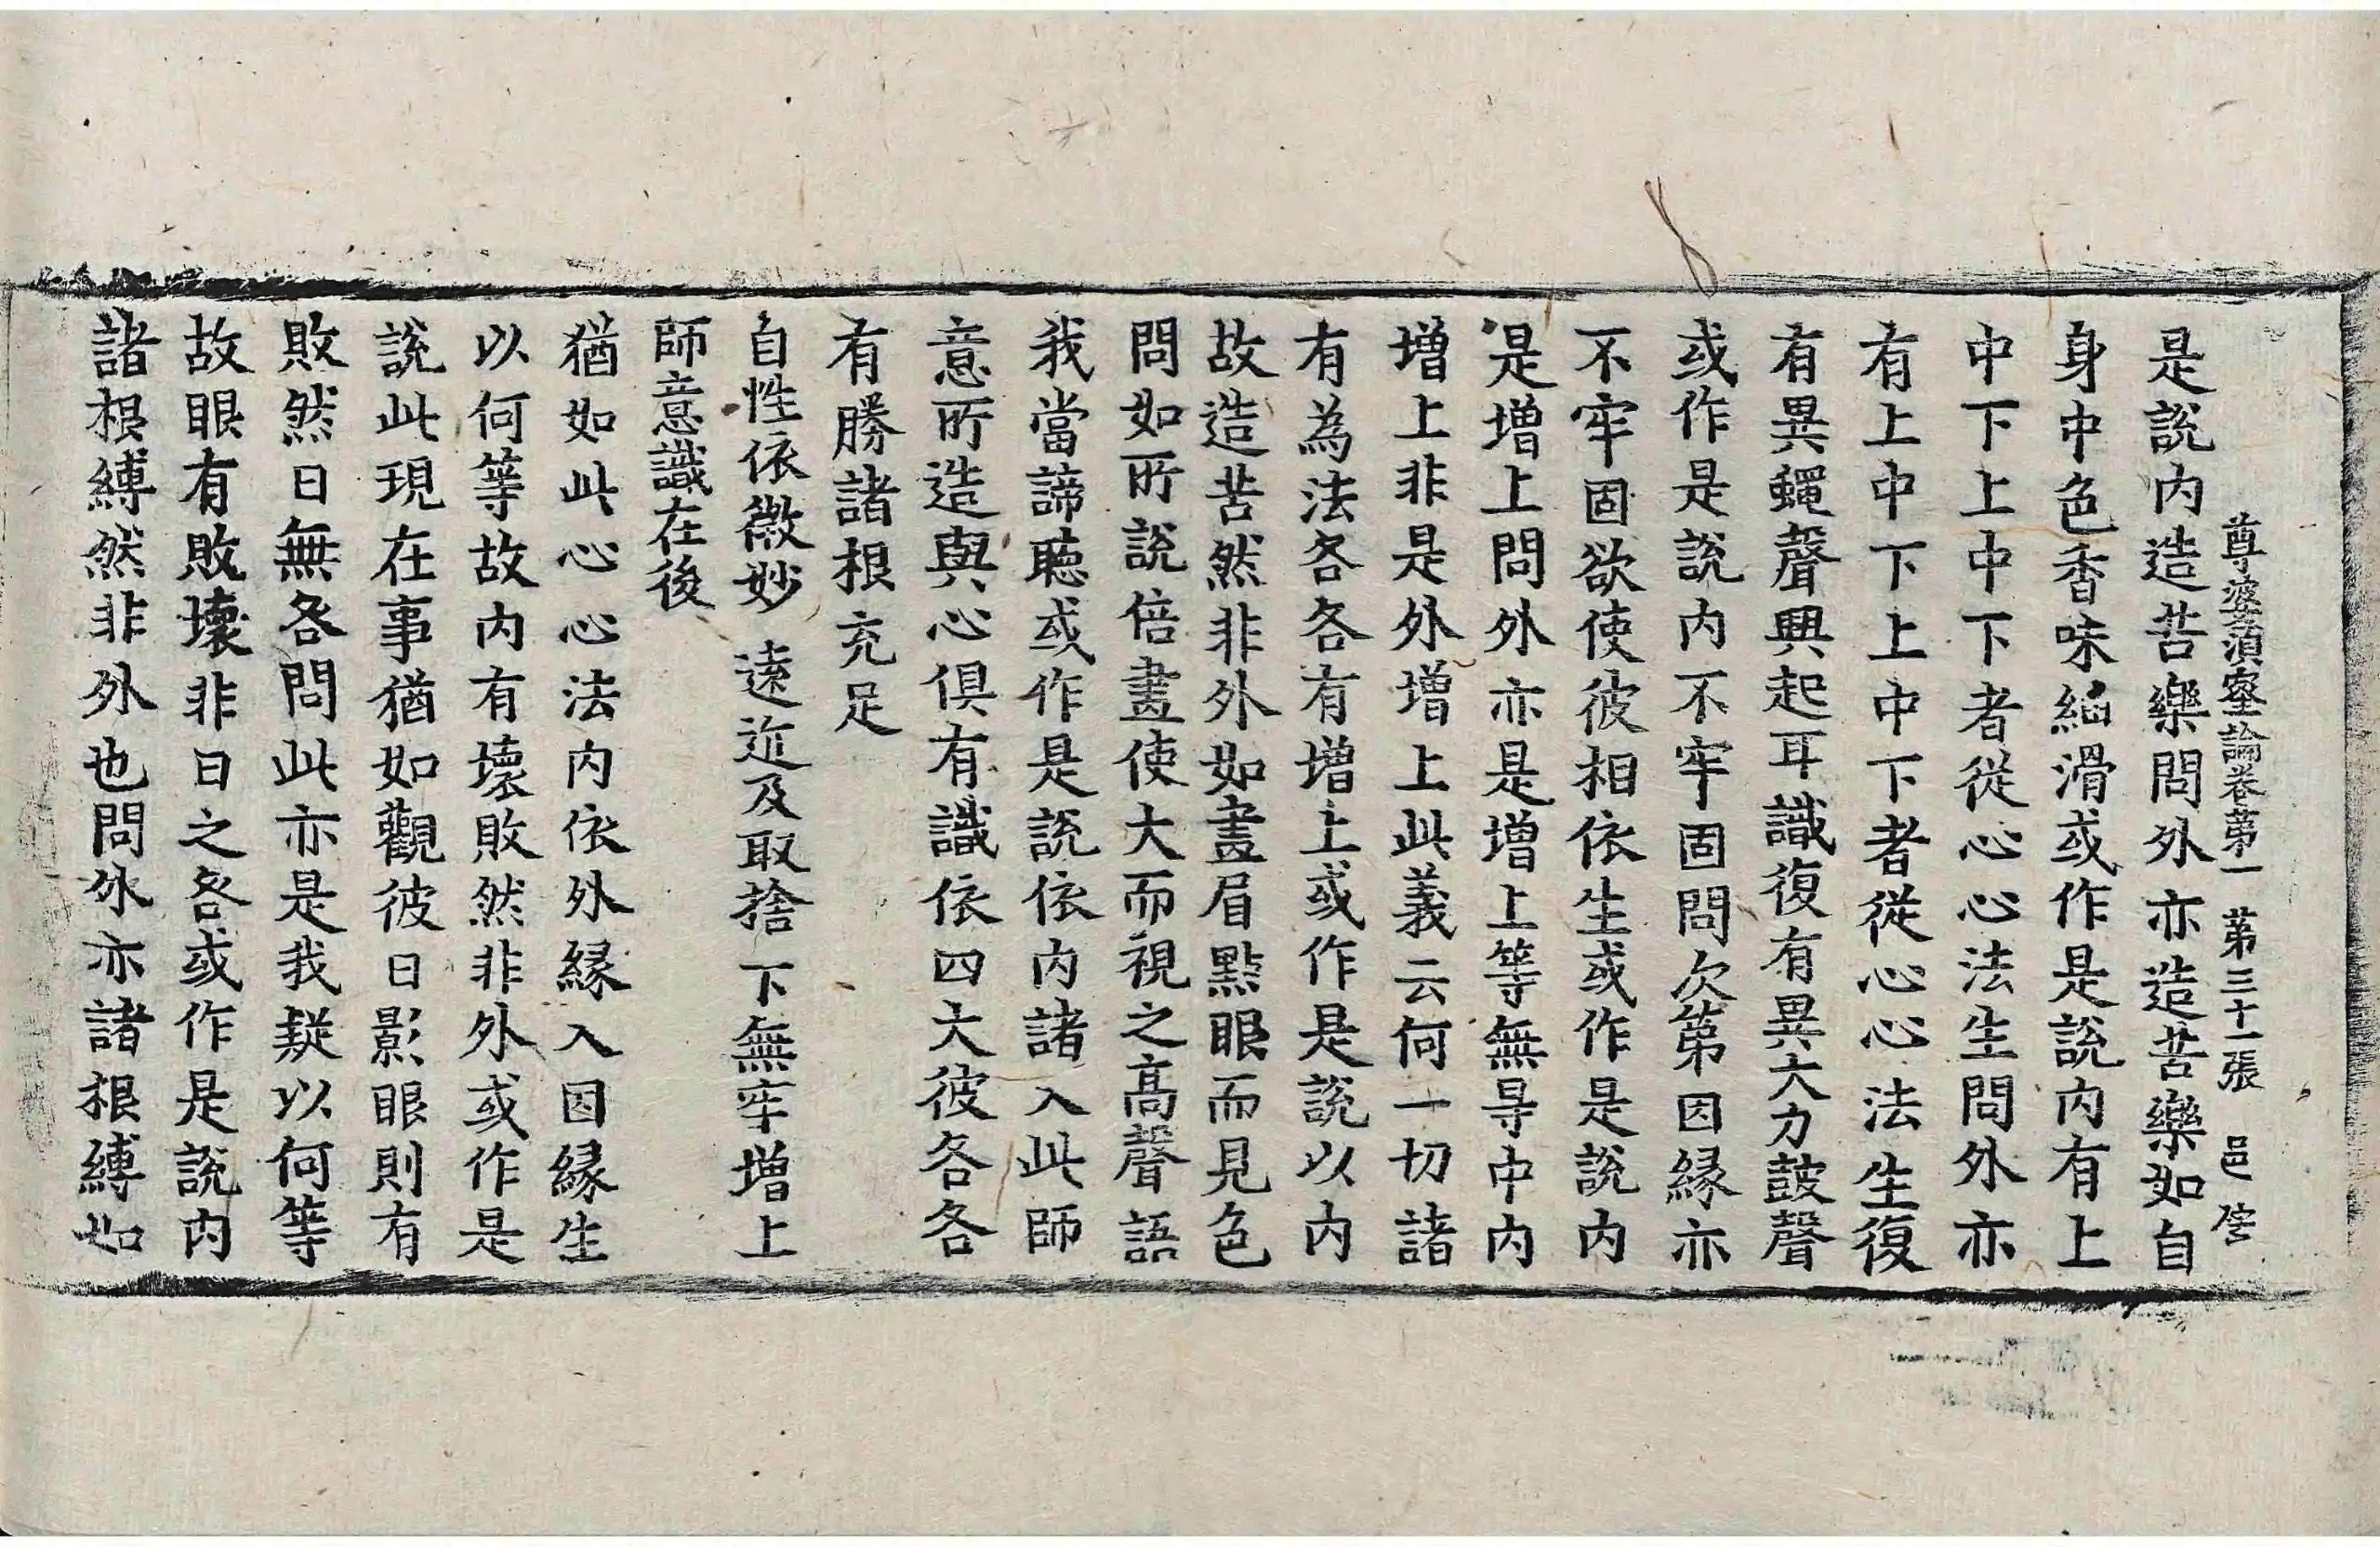 尊婆須蜜論卷第一　第三十一張　邑
是說内造苦樂問外亦造苦樂如自
身中色香味細滑或作是說内有上
中下上中下者從心心法生問外亦
有上中下上中下者從心心法生復
有異蠅聲興起耳識復有異大力鼓聲
或作是說内不牢固問次第因緣亦
不牢固欲使彼相依生或作是說内
是增上問外亦是增上等無㝵中内
增上非是外增上此義云何一切諸
有為法各各有增上或作是說以内
故造苦然非外如畫眉點眼而見色
問如所說倍晝使大而視之高聲語
我當諦聽或作是說依内諸入此師
意所造與心俱有識依四大彼各各
有勝諸根充足
自性依微妙　遠近及取捨　下無牢增上
師意識在後
猶如此心心法内依外緣入因緣生
以何等故内有壞敗然非外或作是
說此現在事猶如觀彼日影眼則有
敗然日無咎問此亦是我疑以何等
故眼有敗壞非日之咎或作是說内
諸根縛然非外也問外亦諸根縛如